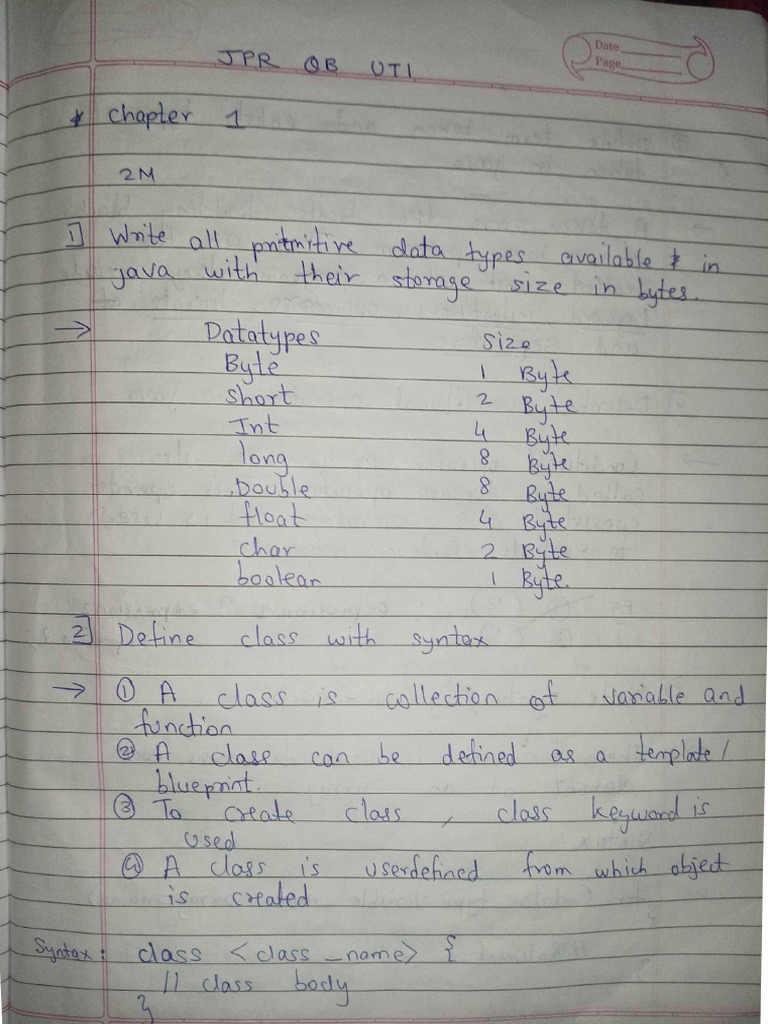 Date
Page
JPR QB UT1
* Chapter 1
2M
1] Write all pritmitive data types available & in
java with their storage size in bytes.
→ Datatypes Size
Byte 1 Byte
short 2 Byte
Int 4 Byte
long 8 Byte
Double 8 Byte
float 4 Byte
char 2 Byte
boolean 1 Byte.
2] Define class with syntax
→ ① A class is collection of variable and
function
② A class can be defined as a template/
blueprint.
③ To create class, class keyword is
used
④ A class is userdefined from which object
is created
Syntax: class <class_name> {
// class body
}